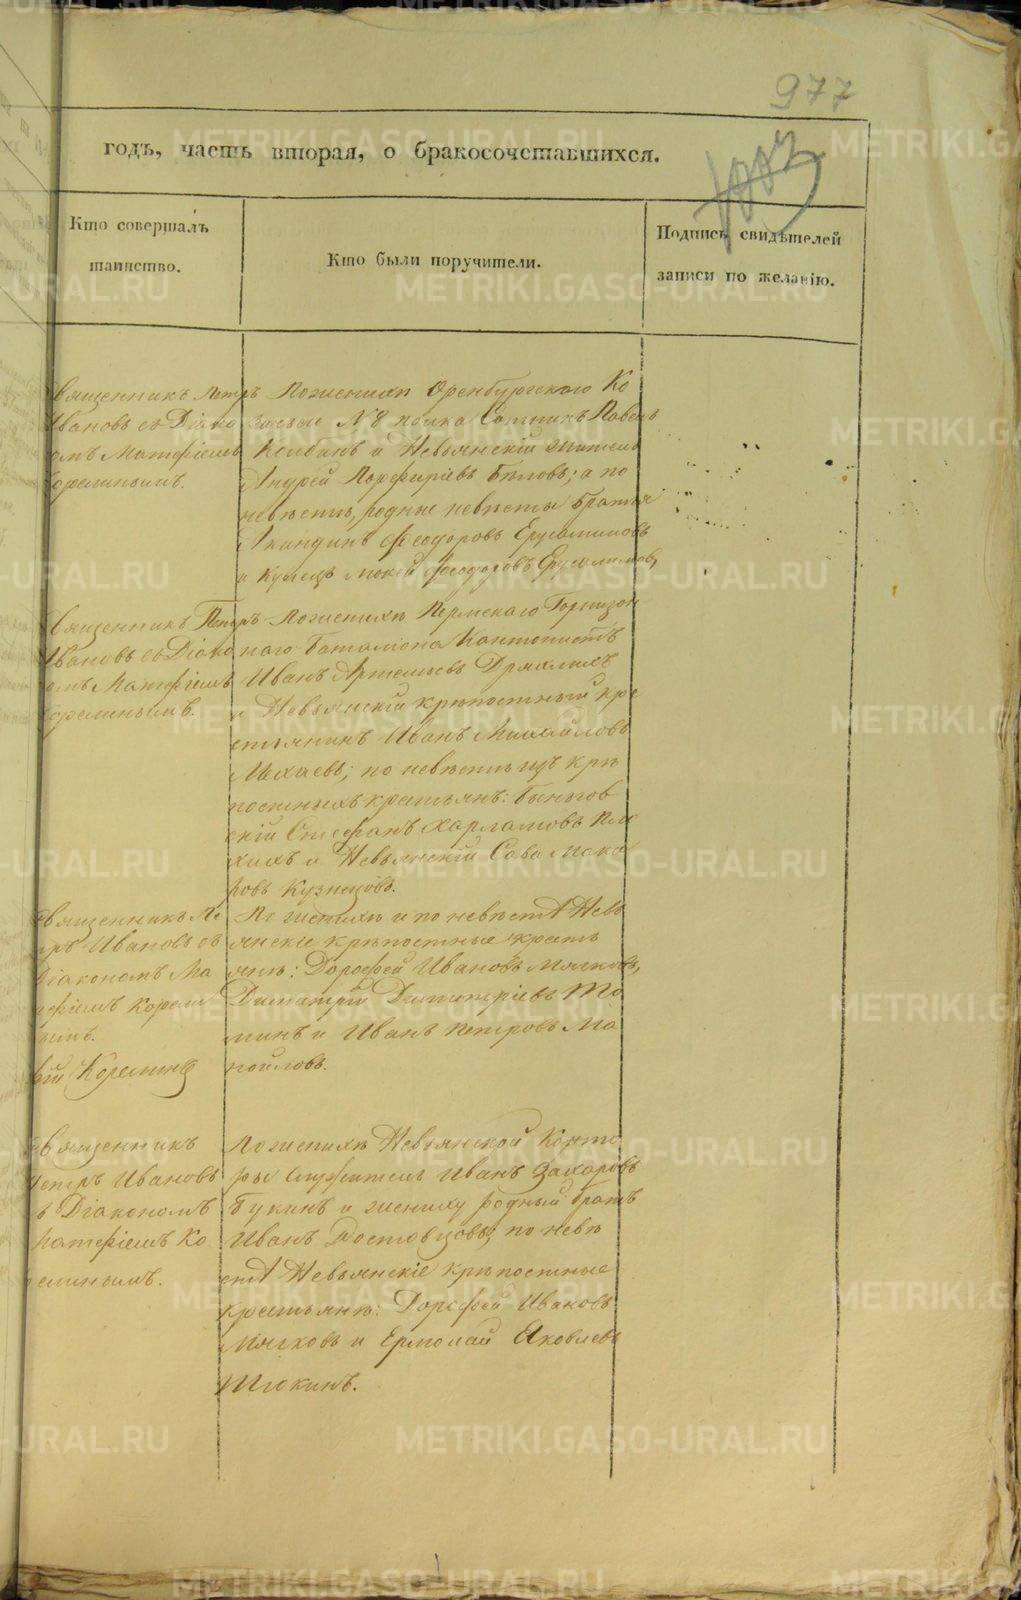 977
1003
годъ, часть вторая, о бракосочетавшихся.
Кто совершалъ
таинство.
Кто были поручители.
Подпись свидѣтелей
записи по желанію.
Священникъ Петръ
Ивановъ съ Діако
номъ Матфіемъ
Корелинымъ.
По женихѣ Оренбургскаго Ко
зачьяго №8 полка Сотникъ Павелъ
Колбинъ и Невьянскій житель
Андрей Порфиріевъ Бѣловъ; а по
невѣстѣ, родные невѣсты братья
Акиндинъ Феодоровъ Ерусалимовъ
и купецъ Мокей Феодоровъ Ерусалимовъ,
Священникъ Петръ
Ивановъ съ Діако
номъ Матфіемъ
Корелинымъ.
По женихѣ Пермскаго Гарнизон
наго баталіона Кантонистъ
Иванъ Артемьевъ Дряхлыхъ
и Невьянскій крѣпостный кре
стьянинъ Иванъ Михайловъ
Махаевъ; по невѣстѣ изъ крѣ
постныхъ крестьянъ: Быньгов
скій Стефанъ Харламовъ
и Невьянскій Сава Мака
ровъ Кузнецовъ.
Священникъ Пе
тръ Ивановъ съ
Діакономъ Ма
тфіемъ Корели
нымъ.
Корелинъ
По женихѣ и по невѣстѣ Невь
янскіе крѣпостные кресть
янѣ: Дорофей Ивановъ Мягковъ,
Димитрій Димитріевъ То
минъ и Иванъ Петровъ Ма
нойловъ.
Священникъ
Петръ Ивановъ
съ Діакономъ
Матфіемъ Ко
релинымъ.
По женихѣ Невьянской Конто
ры служитель Иванъ Захаровъ
Букинъ и жениху родный братъ
Иванъ Ростовцовъ; по невѣ
стѣ Невьянскіе крѣпостные
крестьянѣ: Дорофей Ивановъ
Мягковъ и Ермолай Яковлевъ
Тюкинъ.
METRIKI.GASO-URAL.RU